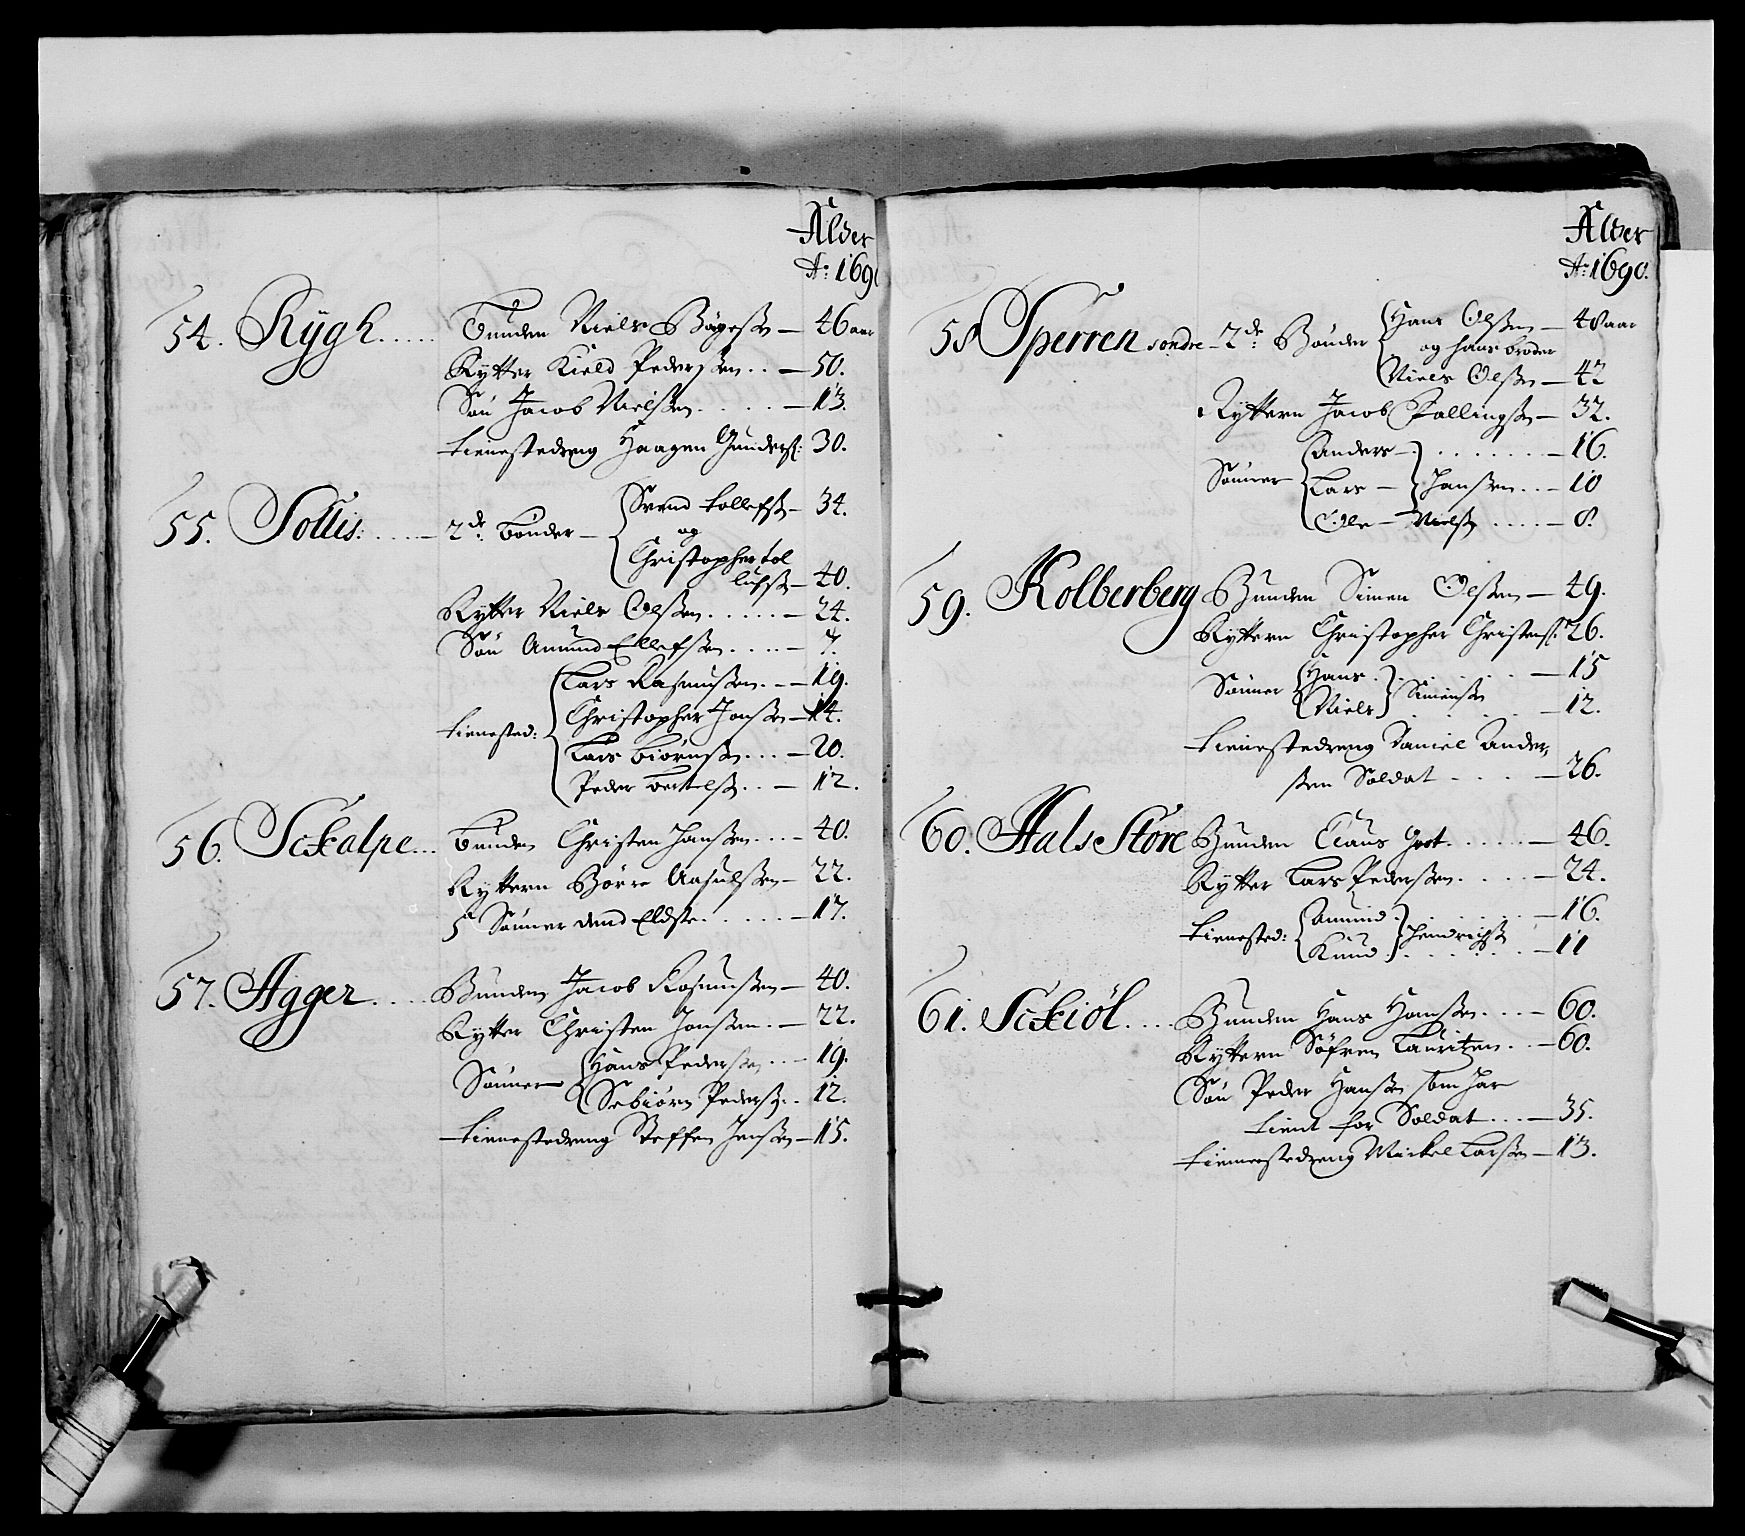 Alder
A:o 169
54. Rÿgh..... Bunden Niels Bøgeß: — 46 aar
Rytter Kield Pederßen .. — 50.
Søn Jacob Nielßen..... — 13.
tienestedreng Haagen Gunderß: 30.
55. Sollis:.... — 2de Bønder — Svend tollefß: — 34.
og
Christopher tol
lufß: — 40.
Rytter Niels Olßen..... — 24.
Søn Amund Ellefßen.... — 7.
tienested: Lars Rasmußen.. — 19.
Christopher Jonßen — 14.
Lars Biørnß:... — 20.
Peder bertelß:.. — 12.
56. Sckalpe... bunden Christen Hanßen... — 40.
Ryttern Børre Aasulßen — 22.
5 Sønner dend Eldste..... — 17.
57. Agger.... Bunden Jacob Rasmußen — 40.
Rytter Christen Jonßen. — 22.
Sønner Hans Pederßen... — 19.
Sebiørn Pederß:.. 12.
tienestedreng Steffen Jenßen — 15.
Alder
A:o 1690.
58 Sperren søndre — 2de Bønder Hans Olßen — 48 aar
og hans broder
Niels Olßen — 42
Ryttern Jacob Pallingß: — 32.
Sønner Anders —....... — 16.
Lars — Hanßen.. — 10
Ole — Nielß:.... — 8.
59. Kolberberg Bunden Simen Olßen — 49.
Ryttern Christopher Christenß: 26.
Sønner Hans....... — 15
Niels Simenßen — 12.
tienestedreng Daniel Ander,
ßen Soldat..... — 26.
60. Hals Store Bunden Claus Grot..... — 46.
Rytter Lars Pederßen.... — 24.
tienested: Amund....... — 16.
Knud Hendrichß:..... — 11
61. Sckiøl.... Bunden Hans Hanßen... — 60.
Ryttern Søfren Lauritzen.. — 60.
Søn Peder Hanßen som har
tient for Soldat... — 35.
tienestedreng Mickel Larßen — 13.